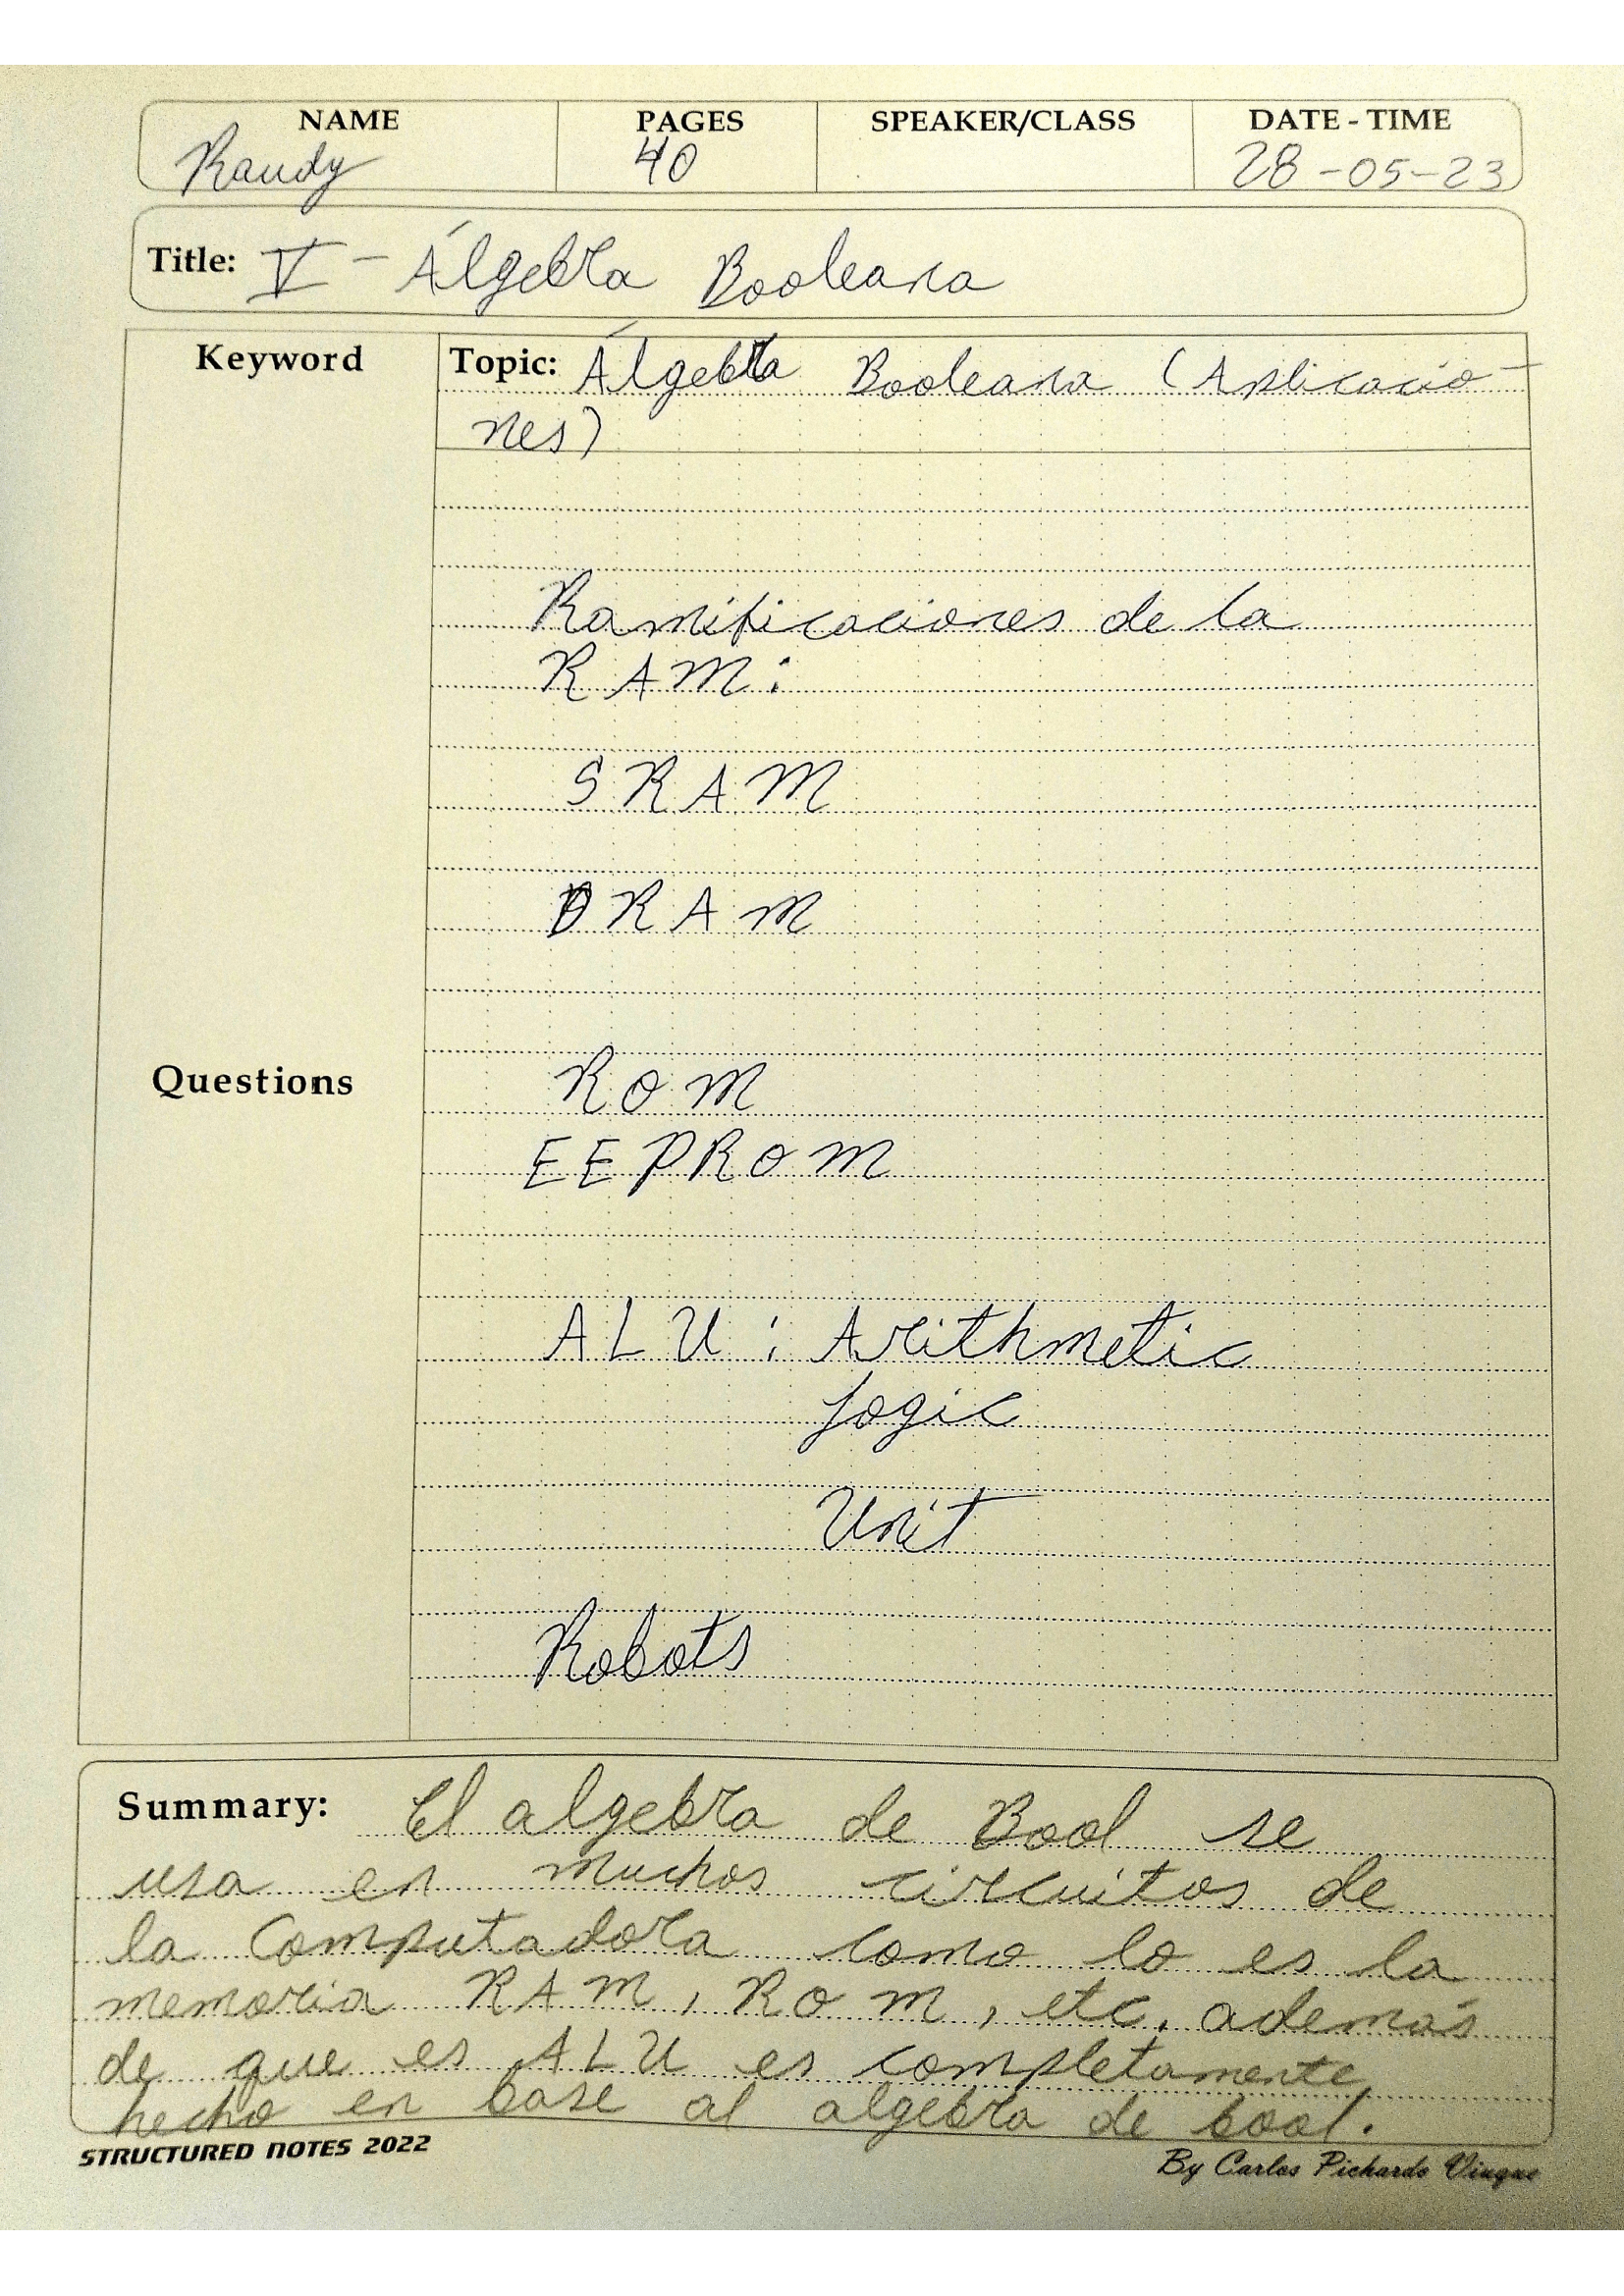 NAME PAGES SPEAKER/CLASS DATE - TIME
Randy 40 28-05-23
Title: V - Álgebra Booleana
Keyword
Topic: Álgebra Booleana (Aplicacio-
nes)
Ramificaciones de la
RAM:
SRAM
DRAM
Questions
ROM
EEPROM
ALU: Arithmetic
Logic
Unit
Robots
Summary: El algebra de Bool se
usa en muchos circuitos de
la Computadora como lo es la
memoria RAM, ROM, etc. además
de que es ALU es completamente
hecho en base al algebra de bool.
STRUCTURED NOTES 2022
By Carlos Pichardo Viuque